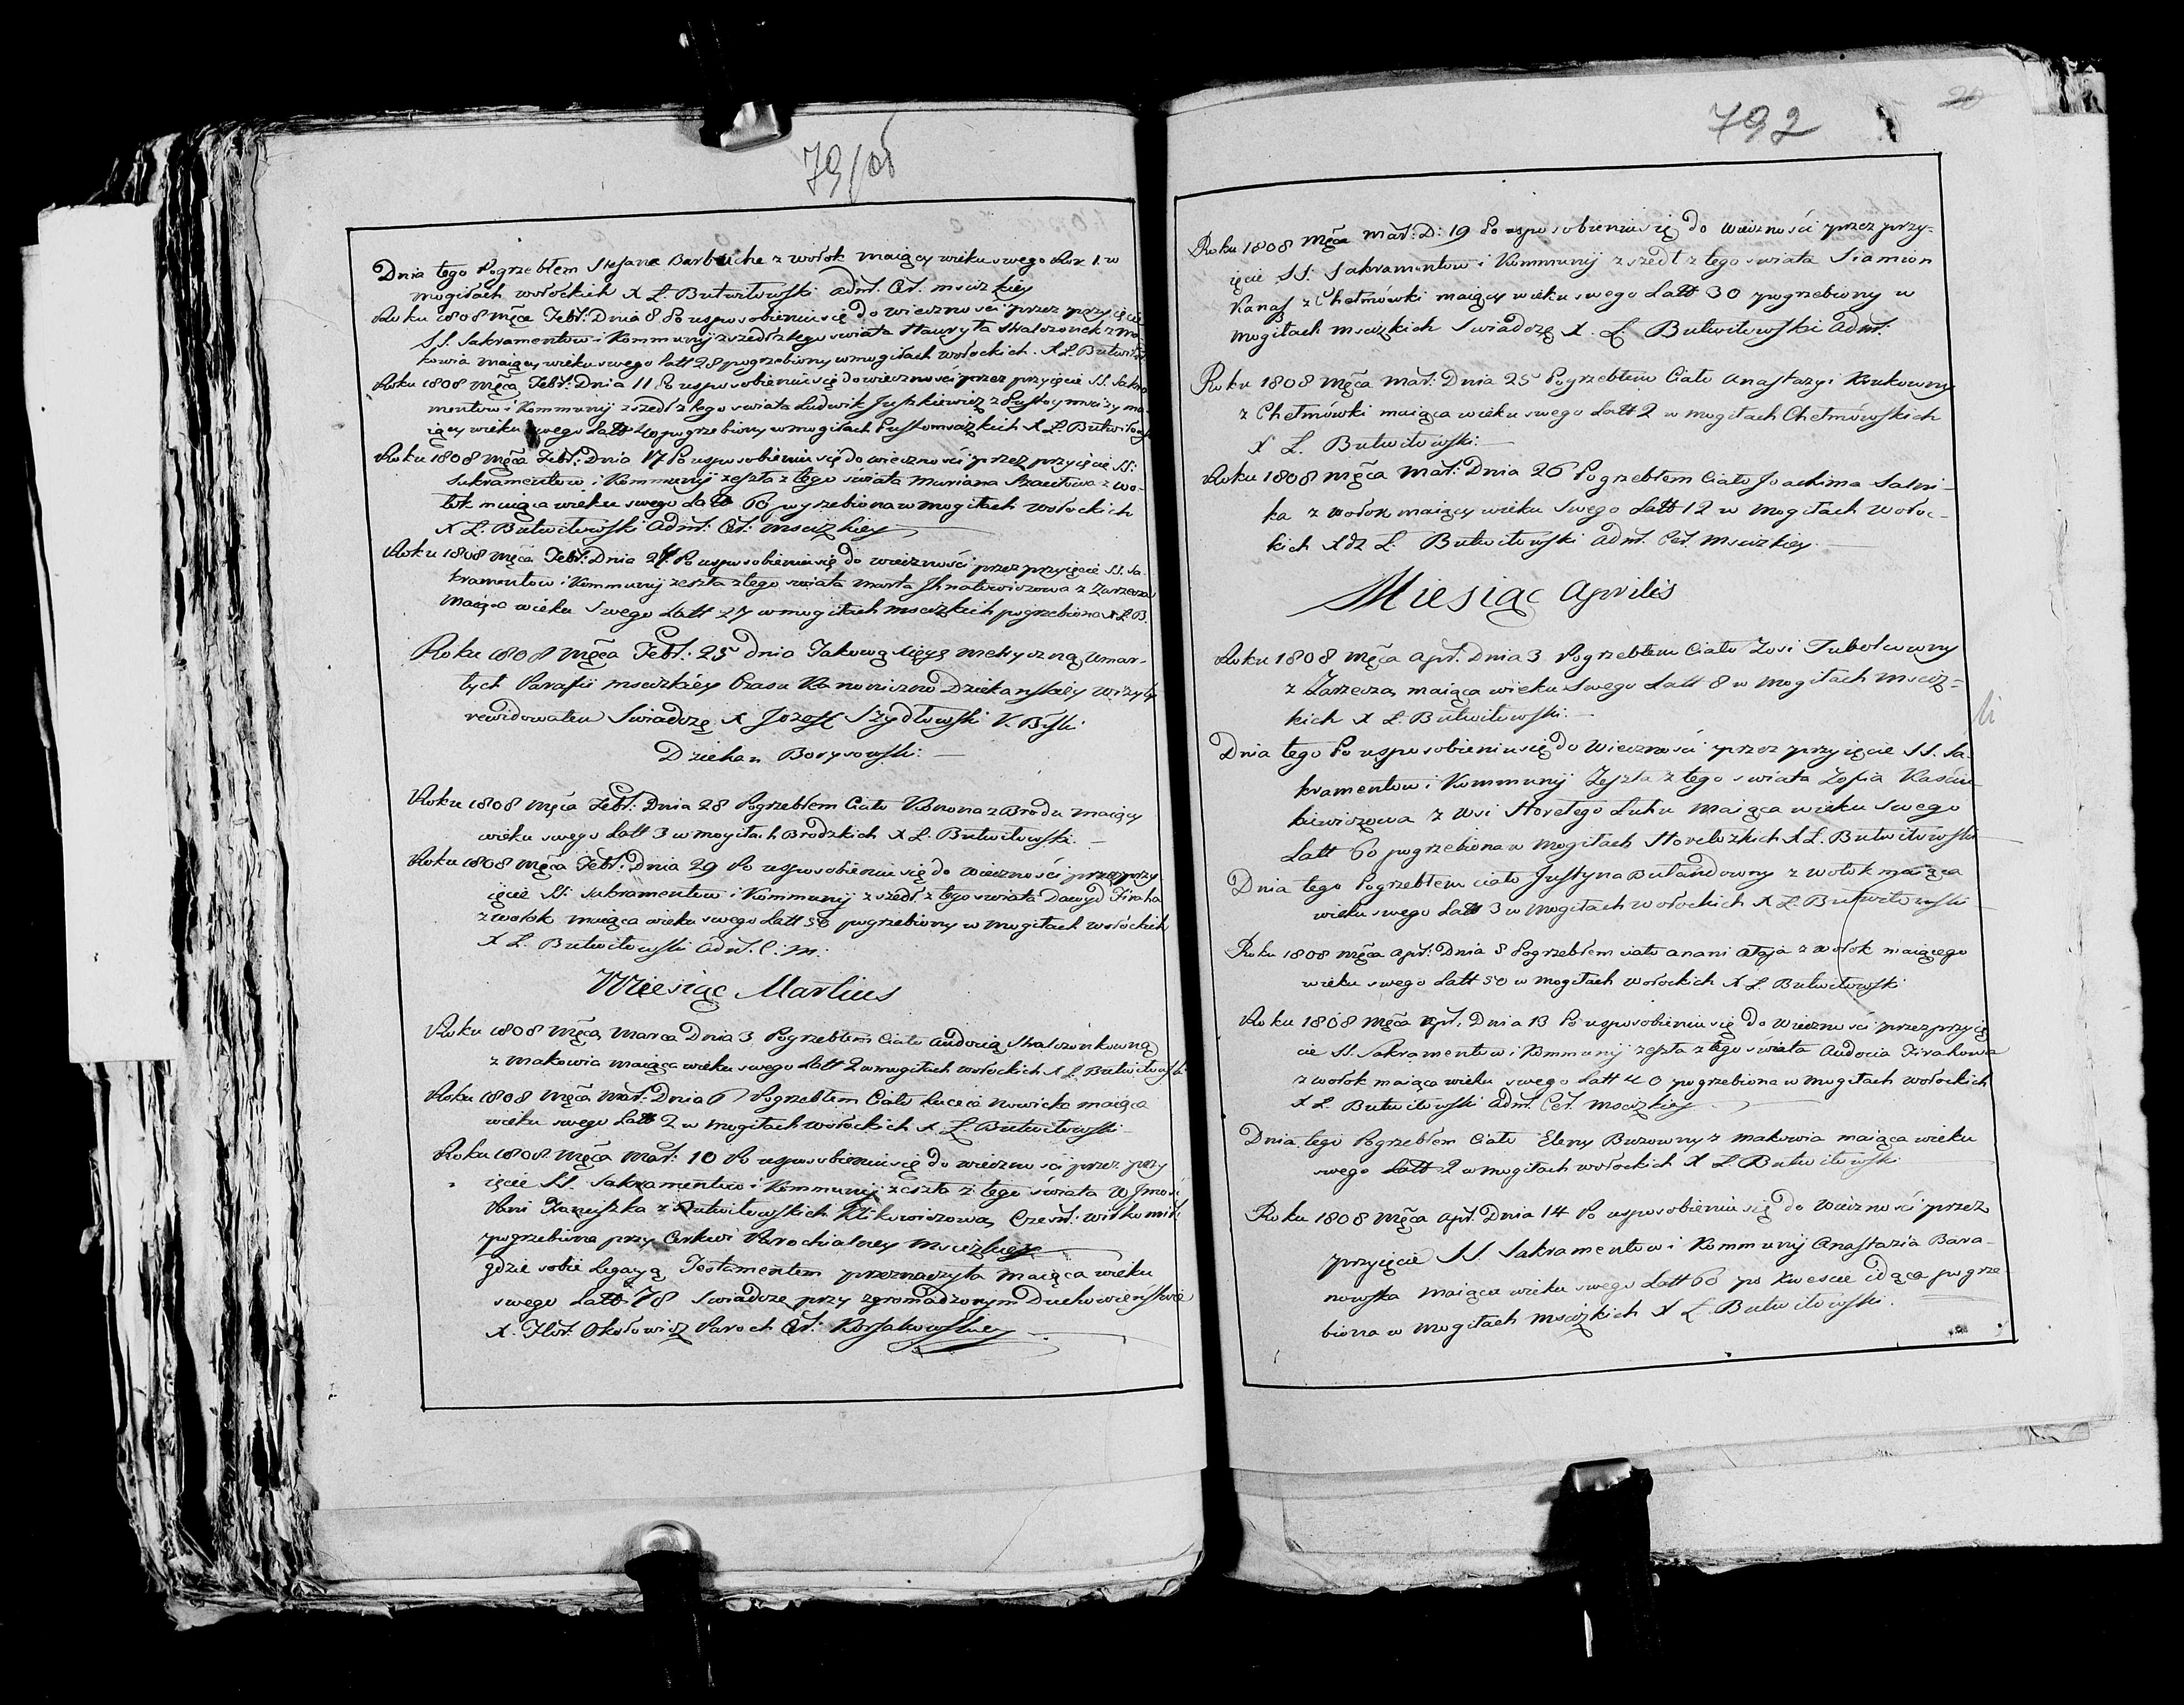 79/об
Dnia tego Pogrzebłem Stefana Barbuche z wołok maiący wieku swego Rok 1. w
mogiłach wołockich X Ł. Butwiłowski Adm. Cer. Mscizkiey
Roku 1808 Męca Febr: Dnia 8 Po usposobieniu się do wieczności przez przyięcie
SS. Sakramentow i Kommunij zszedł z tego swiata Hauryła Skalozonek z Ma-
kowia maiący wieku swego Latt 28 pogrzebiony w mogiłach wołockich. X Ł. Butwiło
Roku 1808 Męca Febr: Dnia 11 Po usposobieniu się do wieczności przez przyięcie SS. Sakra
mentow i Kommunij zszedł z tego swiata Ludwik Juszkiewicz z Pustoy Mscizy ma-
iący wieku swego Latt 40 pogrzebiony w mogiłach Pustomscizkich X Ł. Butwiłowski
Roku 1808 Męca Febr: Dnia 17 Po usposobieniu się do wieczności przez przyięcie SS:
Sakramentow i Kommunij zeszła z tego świata Mariana z wo-
łok maiąca wieku swego Latt 60 pogrzebiona w mogiłach wołockich
X Ł. Butwiłowski Adm: Cer: Mscizkiey
Roku 1808 Męca Febr: Dnia 24 Po usposobieniu się do wieczności przez przyięcie SS. Sa-
kramentow i Kommunij zeszła z tego swiata Marta Jhnatowiczowa z Zarzecza
Maiąca wieku Swego Latt 27 w mogiłach mscizkich pogrzebiona X Ł. B.
Roku 1808 Męca Febr. 25 dnia Takową Xięgę metryczną Umar-
łych Parafii mscizkiey Czasu Dziekanskiey wizyty
rewidowałem Swiadczę X Jozeff Szydłowski V.
Dziekan Borysowski.
Roku 1808 Męca Febr: Dnia 28 Pogrzebłem Ciało z Brodu maiący
wieku swego Latt 3 w mogiłach Brodzkich X Ł. Butwiłowski.
Roku 1808 Męca Febr: Dnia 29 Po usposobieniu się do wieczności przez przy-
ięcie SS: Sakramentow i Kommunij zszedł z tego swiata Dawyd Ziraha
z wołok maiąca wieku swego Latt 50 pogrzebiony w mogiłach wołockich
X Ł. Butwiłowski Adm. C. M.
Miesiąc Martius
Roku 1808 Męca Marca Dnia 3 Pogrzebłem Ciało Audocią Skalozonkowną
z Makowia maiąca wieku swego Latt 2 w mogiłach wołockich X Ł. Butwiłowski
Roku 1808 Męca Mar: Dnia 6 Pogrzebłem Ciało Nowicka maiąca
wieku swego Latt 2 w mogiłach wołockich X Ł. Butwiłowski
Roku 1808 Męca Mar: 10 Po usposobieniu się do wieczności przez przy
ięcie SS. Sakramentow i Kommunij zeszła z tego świata W Jmość
Pani Franciszka z Butwiłowskich Klikowiczowa,
pogrzebiona przy Cerkwi Parochialney Mscizkiey
gdzie sobie Legacyą Testamentem przeznaczyła maiąca wieku
swego Latt 78 Swiadcze przy zgromadzonym Duchowieństwie
X. Okołowicz Paroch Cer: Korsakowskiey
792
20
Roku 1808 Męca Mar: D: 19 Po usposobieniu się do wieczności przez przy-
ięcie SS. Sakramentow i Kommunij zszedł z tego swiata Siamion
z Chełmówki maiący wieku swego Latt 30 pogrzebiony w
mogiłach mscizkich Swiadczę X. Ł Butwiłowski Adm:
Roku 1808 Męca Mar: Dnia 25 Pogrzebłem Ciało Anastazyi Krukowny
z Chełmówki maiąca wieku swego Latt 2 w mogiłach Chełmówskich
X Ł. Butwiłowski.
Roku 1808 Męca Mar: Dnia 26 Pogrzebłem Ciało Joachima Salni-
ka z wołok maiący wieku Swego Latt 12 w mogiłach wołoc-
kich Xdz Ł. Butwiłowski Adm. Cer. Mscizkiey.
Miesiąc Aprilis
Roku 1808 Męca Apr. Dnia 3 Pogrzebłem Ciało Zosi Tubolcowny
z Zarzecza, maiąca wieku Swego Latt 8 w Mogiłach Msciz=
kich X Ł. Butwiłowski.
Dnia tego Po usposobieniu się do Wieczności przez przyięcie SS. Sa-
kramentow i Kommunij Zeszła z tego swiata Zofia Kasciu-
kiewiczowa z Wsi Horełego Luhu maiąca wieku swego
Latt 60 pogrzebiona w mogiłach X Ł. Butwiłowski
Dnia tego Pogrzebłem ciało Justyna Bulandowny z wołok maiąca
wieku swego Latt 3 w mogiłach wołockich X Ł. Butwiłowski
Roku 1808 Męca Apr: Dnia 8 Pogrzebłem ciało Anani z wołok maiącego
wieku swego Latt 50 w mogiłach wołockich X Ł Butwiłowski
Roku 1808 Męca Apr. Dnia 13 Po usposobieniu się do wieczności przez przyię
cie SS. Sakramentow i Kommunij zeszła z tego świata Audocia Zirahowa
z wołok maiąca wieku swego Latt 40 pogrzebiona w mogiłach wołockich
X Ł. Butwiłowski Adm. Cer. Mscizkiey
Dnia tego Pogrzebłem Ciało Eleny Buzowny z Makowia maiąca wieku
swego Latt 2 w mogiłach wołockich X Ł Butwiłowski
Roku 1808 Męca Apr. Dnia 14 Po usposobieniu się do Wieczności przez
przyięcie SS. Sakramentow i Kommunij Anastazia Bara-
nowska maiąca wieku swego Latt 60 po kwescie idąca pogrze
biona w mogiłach mscizkich X Ł. Butwiłowski.